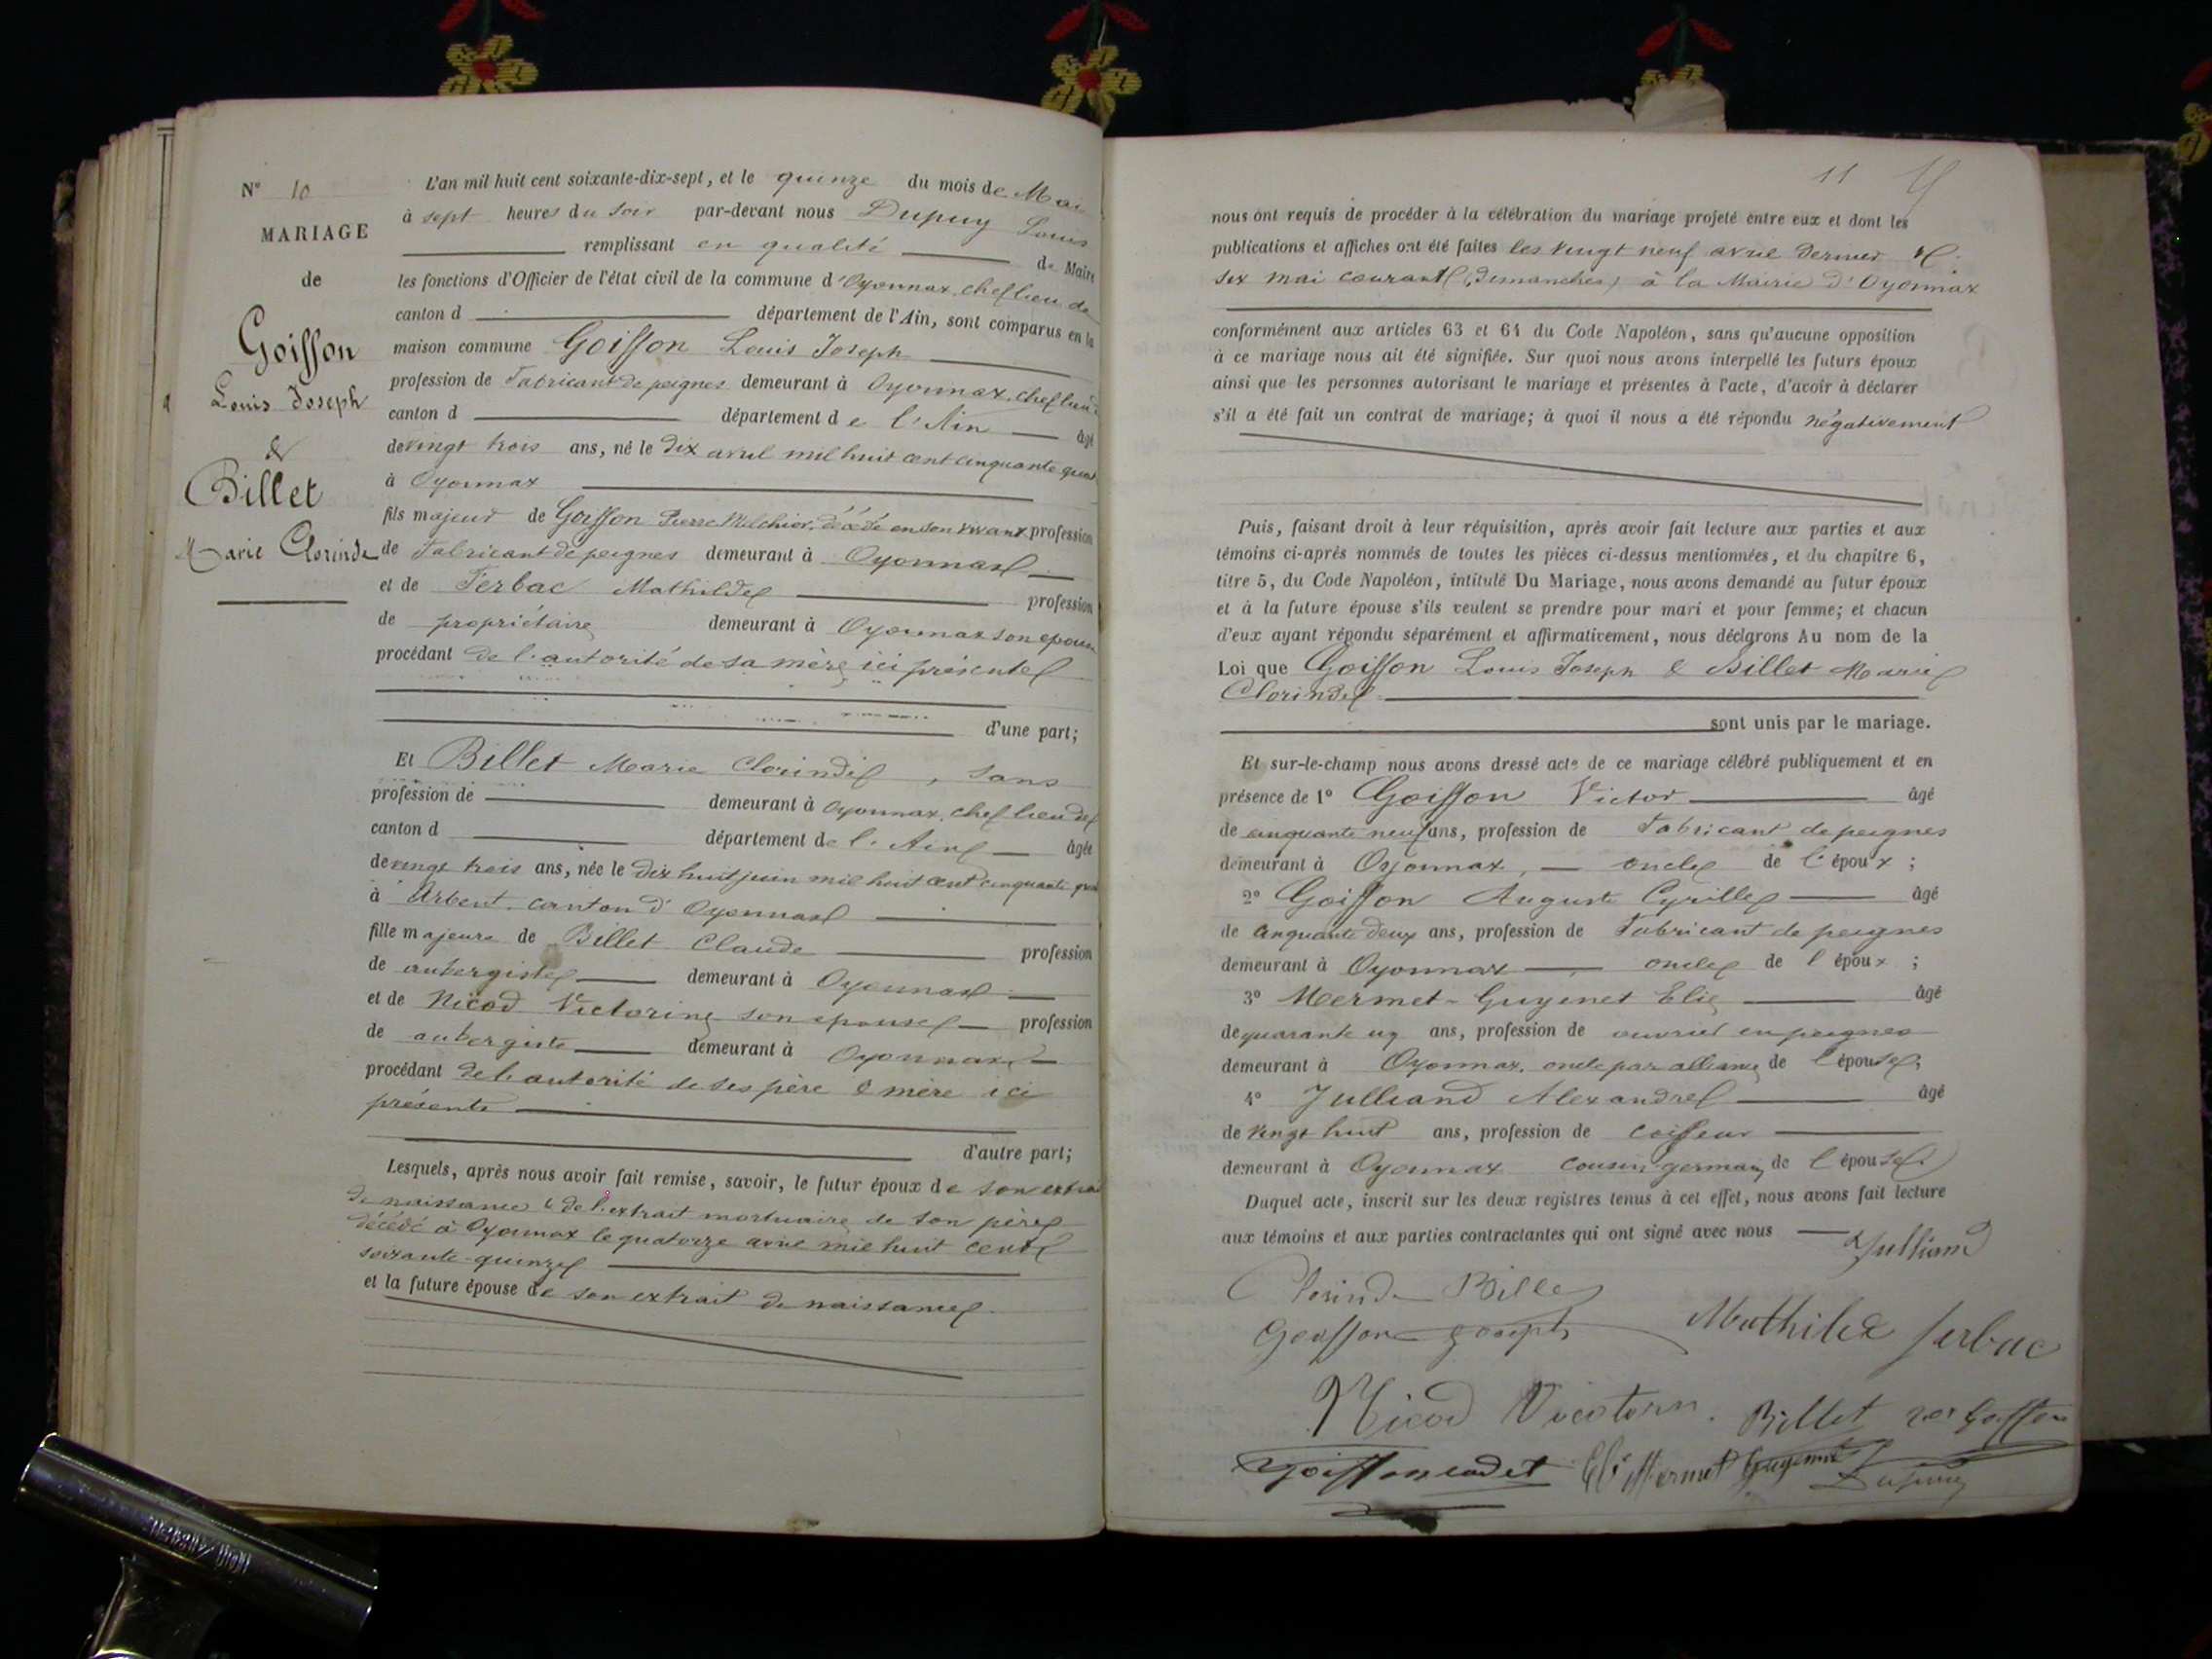 N° 10
MARIAGE
de
Goisson
Louis Joseph
&
Billet
Marie Clorinde
L'an mil huit cent soixante-dix-sept, et le quinze du mois de Mai
à sept heures du soir par-devant nous Dupuy Louis
remplissant en qualité de Maire
les fonctions d'Officier de l'état civil de la commune d'Oyonnax, chef lieu de
canton d département de l'Ain, sont comparus en la
maison commune Goisson Louis Joseph
profession de Fabricant de peignes demeurant à Oyonnax, chef lieu
canton d département de l'Ain âgé
de vingt trois ans, né le dix avril mil huit cent cinquante quat
à Oyonnax
fils majeur de Goisson Pierre Melchior, décédé en son vivant profession
de Fabricant de peignes demeurant à Oyonnax
et de Ferbac Mathilde profession
de propriétaire demeurant à Oyonnax son epouse
procédant de l'autorité de sa mère ici présente
d'une part;
Et Billet Marie Clorinde, sans
profession de demeurant à Oyonnax, chef lieu de
canton d département de l'Ain âgée
de vingt trois ans, née le dix huit juin mil huit cent cinquante
à Arbent, canton d'Oyonnax
fille majeure de Billet Claude profession
de aubergiste demeurant à Oyonnax
et de Nicod Victorine son epouse profession
de aubergiste demeurant à Oyonnax
procédant de l'autorité de ses père & mère ici
présents
d'autre part;
Lesquels, après nous avoir fait remise, savoir, le futur époux de son extrai
de naissance & de l'extrait mortuaire de son père
décédé à Oyonnax le quatorze avril mil huit cent
soixante-quinze
et la future épouse de son extrait de naissance.
11
nous ont requis de procéder à la célébration du mariage projeté entre eux et dont les
publications et affiches ont été faites les vingt neuf avril dernier &
six mai courant (dimanches) à la Mairie d'Oyonnax
conformément aux articles 63 et 64 du Code Napoléon, sans qu'aucune opposition
à ce mariage nous ait été signifiée. Sur quoi nous avons interpellé les futurs époux
ainsi que les personnes autorisant le mariage et présentes à l'acte, d'avoir à déclarer
s'il a été fait un contrat de mariage; à quoi il nous a été répondu négativement
Puis, faisant droit à leur réquisition, après avoir fait lecture aux parties et aux
témoins ci-après nommés de toutes les pièces ci-dessus mentionnées, et du chapitre 6,
titre 5, du Code Napoléon, intitulé Du Mariage, nous avons demandé au futur époux
et à la future épouse s'ils veulent se prendre pour mari et pour femme; et chacun
d'eux ayant répondu séparément et affirmativement, nous déclarons Au nom de la
Loi que Goisson Louis Joseph & Billet Marie
Clorinde
sont unis par le mariage.
Et sur-le-champ nous avons dressé acte de ce mariage célébré publiquement et en
présence de 1° Goisson Victor âgé
de cinquante neuf ans, profession de Fabricant de peignes
demeurant à Oyonnax, oncle de l'époux;
2° Goisson Auguste Cyrille âgé
de cinquante deux ans, profession de Fabricant de peignes
demeurant à Oyonnax oncle de l'époux;
3° Mermet-Guyenet Elie âgé
de quarante un ans, profession de ouvrier en peignes
demeurant à Oyonnax, oncle par alliance de l'épouse;
4° Julliand Alexandre âgé
de vingt huit ans, profession de coiffeur
demeurant à Oyonnax cousin germain de l'épouse
Duquel acte, inscrit sur les deux registres tenus à cet effet, nous avons fait lecture
aux témoins et aux parties contractantes qui ont signé avec nous
Julliand
Clorinde Billet
Goisson Joseph Mathilde Ferbac
Nicod Billet Goisson
Goisson cadet Elie Mermet Guyenet Dupuy